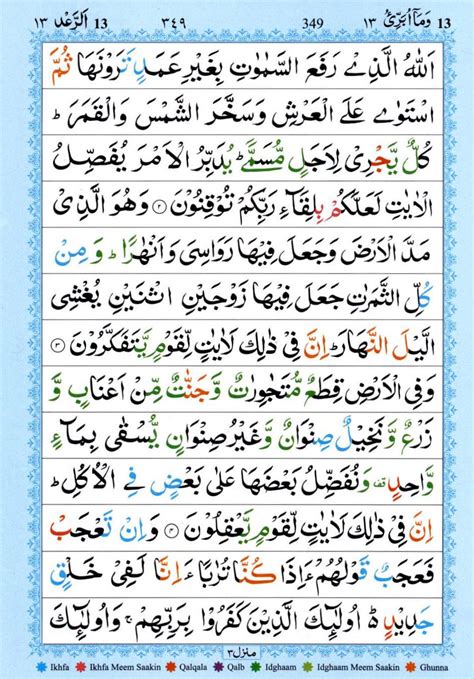 13 وَمَآ اُبَرِّئُ ١٣ 349 ٣٤٩ 13 اَلرَّعْد ١٣
اَللّٰهُ الَّذِيْ رَفَعَ السَّمٰوٰتِ بِغَيْرِ عَمَدٍ تَرَوْنَهَا ثُمَّ
اسْتَوٰى عَلَى الْعَرْشِ وَسَخَّرَ الشَّمْسَ وَالْقَمَرَ ؕ
كُلٌّ يَّجْرِيْ لِاَجَلٍ مُّسَمًّى ؕ يُدَبِّرُ الْاَمْرَ يُفَصِّلُ
الْاٰيٰتِ لَعَلَّكُمْ بِلِقَآءِ رَبِّكُمْ تُوْقِنُوْنَ ۝۲ وَهُوَ الَّذِيْ
مَدَّ الْاَرْضَ وَجَعَلَ فِيْهَا رَوَاسِيَ وَاَنْهٰرًا ؕ وَمِنْ
كُلِّ الثَّمَرٰتِ جَعَلَ فِيْهَا زَوْجَيْنِ اثْنَيْنِ يُغْشِي
الَّيْلَ النَّهَارَ ؕ اِنَّ فِيْ ذٰلِكَ لَاٰيٰتٍ لِّقَوْمٍ يَّتَفَكَّرُوْنَ ۝۳
وَفِي الْاَرْضِ قِطَعٌ مُّتَجٰوِرٰتٌ وَّجَنّٰتٌ مِّنْ اَعْنَابٍ وَّ
زَرْعٌ وَّنَخِيْلٌ صِنْوَانٌ وَّغَيْرُ صِنْوَانٍ يُّسْقٰى بِمَآءٍ
وَّاحِدٍ ۫ وَنُفَضِّلُ بَعْضَهَا عَلٰى بَعْضٍ فِي الْاُكُلِ ؕ
اِنَّ فِيْ ذٰلِكَ لَاٰيٰتٍ لِّقَوْمٍ يَّعْقِلُوْنَ ۝۴ وَاِنْ تَعْجَبْ
فَعَجَبٌ قَوْلُهُمْ ءَاِذَا كُنَّا تُرٰبًا ءَاِنَّا لَفِيْ خَلْقٍ
جَدِيْدٍ ؕ اُولٰٓئِكَ الَّذِيْنَ كَفَرُوْا بِرَبِّهِمْ ۚ وَاُولٰٓئِكَ
منزل ٣
Ikhfa Ikhfa Meem Saakin Qalqala Qalb Idghaam Idghaam Meem Saakin Ghunna